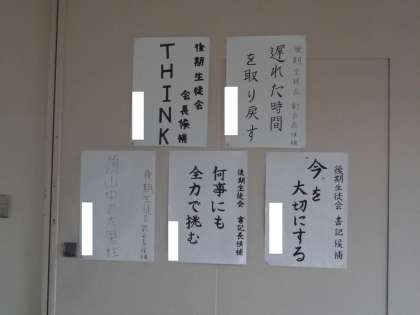 後期生徒会
会長候補
THINK
後期生徒会 副会長候補
遅れた時間
を取り戻す
後期生徒会
後期生徒会 書記長候補
何事にも
全力で挑む
後期生徒会 書記候補
今を
大切にする